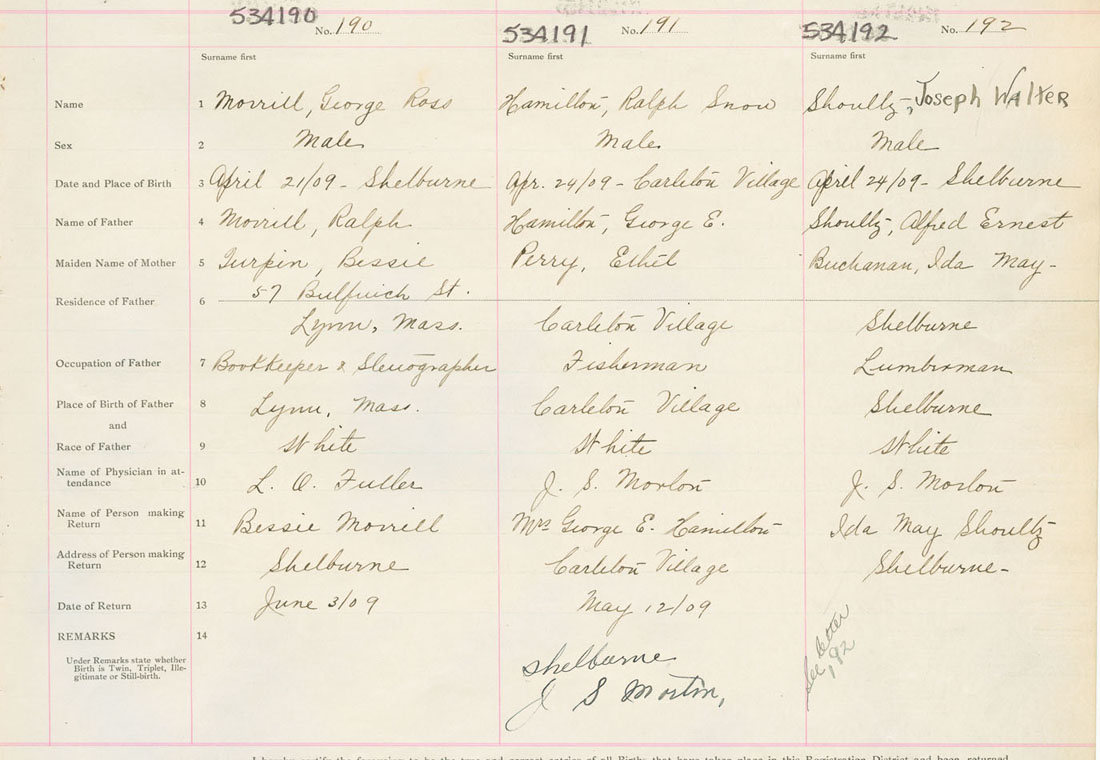 534190 No. 190 534191 No. 191 534192 No. 192
Surname first Surname first Surname first
Name 1 Morrill, George Ross Hamilton, Ralph Snow Shoultz, Joseph Walter
Sex 2 Male Male Male
Date and Place of Birth 3 April 21/09 - Shelburne Apr. 24/09 - Carleton Village April 24/09 - Shelburne
Name of Father 4 Morrill, Ralph Hamilton, George E. Shoultz, Alfred Ernest
Maiden Name of Mother 5 Turpin, Bessie Perry, Ethel Buchanan, Ida May -
Residence of Father 6 57 Bulfinch St.
Lynn, Mass. Carleton Village Shelburne
Occupation of Father 7 Bookkeeper & Stenographer Fisherman Lumberman
Place of Birth of Father 8 Lynn, Mass. Carleton Village Shelburne
and
Race of Father 9 White White White
Name of Physician in at-
tendance 10 L. O. Fuller J. S. Morton J. S. Morton
Name of Person making
Return 11 Bessie Morrill Mrs George E. Hamilton Ida May Shoultz
Address of Person making
Return 12 Shelburne Carleton Village Shelburne -
Date of Return 13 June 3/09 May 12/09
REMARKS 14
Under Remarks state whether
Birth is Twin, Triplet, Ille-
gitimate or Still-birth.
Shelburne
J S Morton,
See letter
192
I hereby certify the foregoing to be the true and correct entries of all Births that have taken place in this Registration District and been returned